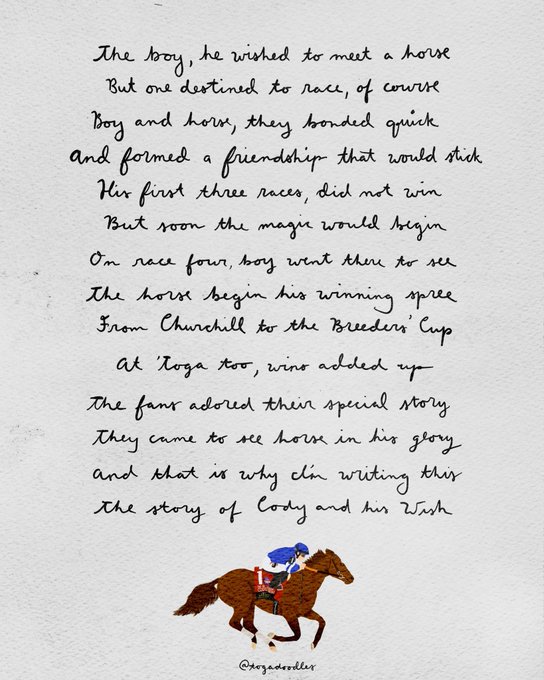 The boy, he wished to meet a horse
But one destined to race, of course
Boy and horse, they bonded quick
And formed a friendship that would stick
His first three races, did not win
But soon the magic would begin
On race four, boy went there to see
The horse begin his winning spree
From Churchill to the Breeders' Cup
At 'Toga too, wins added up
The fans adored their special story
They came to see horse in his glory
And that is why I'm writing this
The story of Cody and his Wish
1
@togadoodles